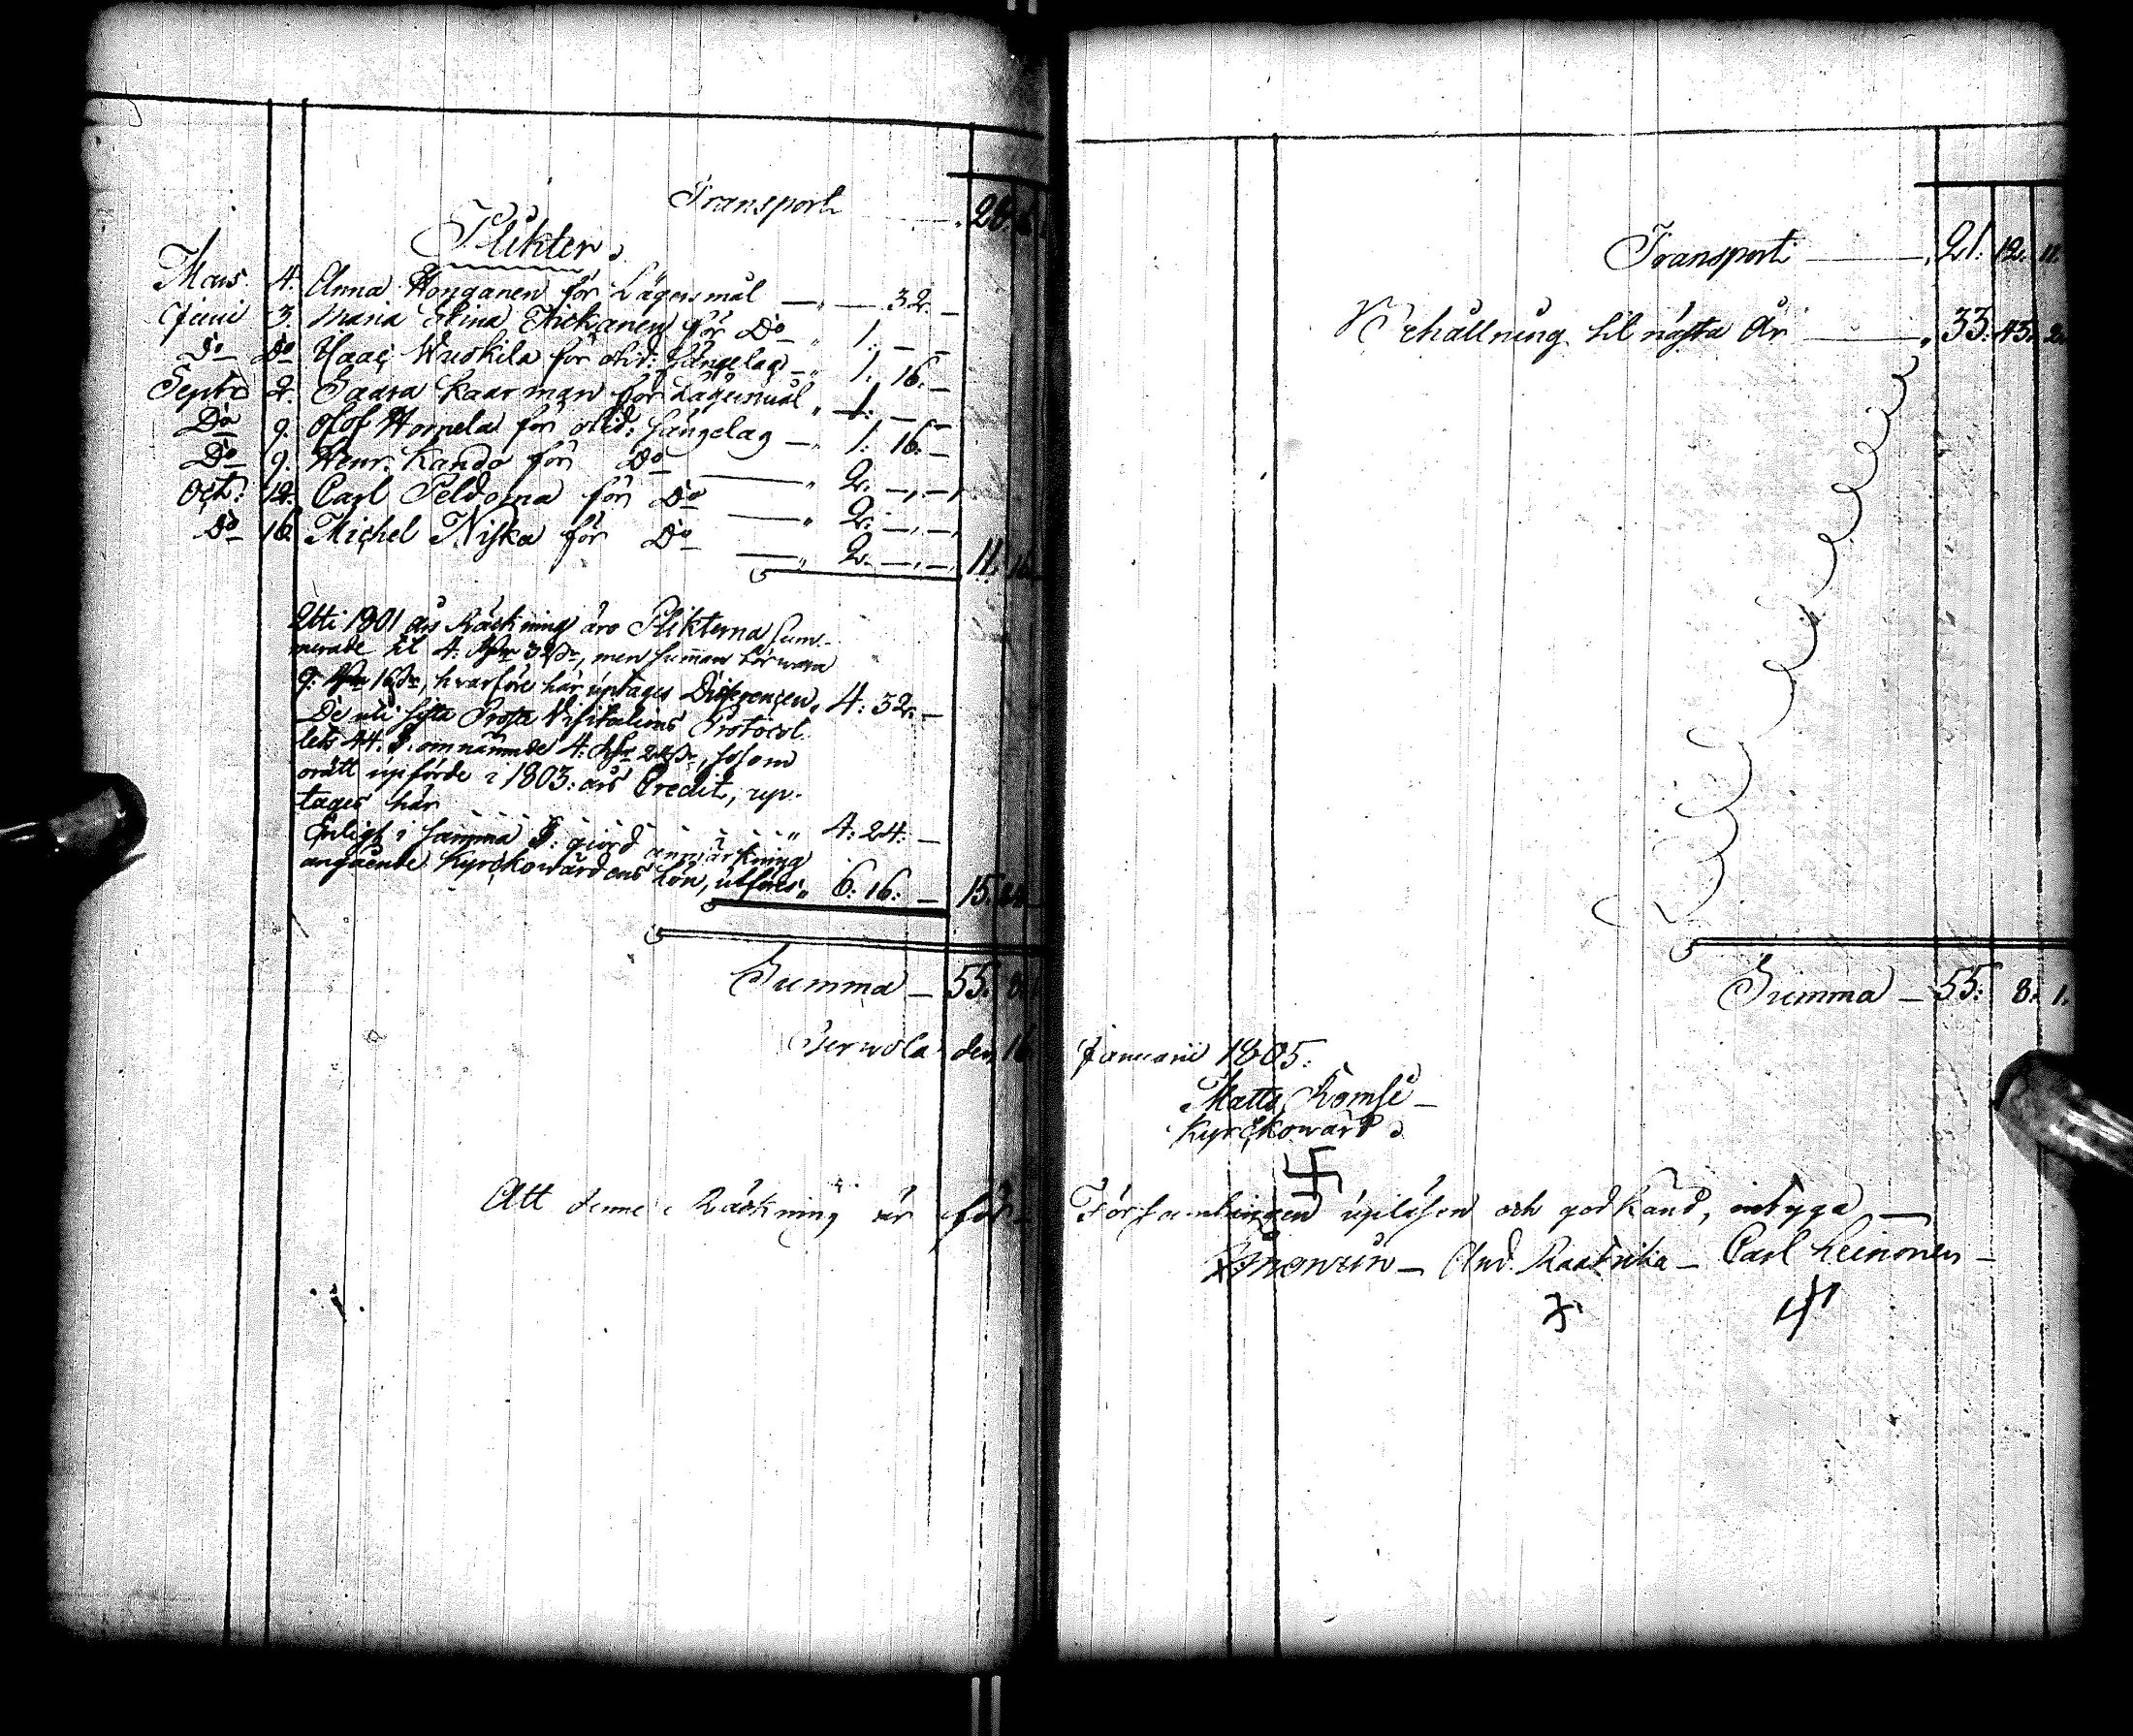 Transport — 28. 8.
Plikter.
Mars 4. Anna Honganen för Lägersmål — " — 32. —
Junii 3. Maria Stina Kickanen för Do — " 1. — —
Do Do Isaac Wuoskila för olid: Sängelag — " 1. 16. —
Septr 2. Saara Kaarman för Lägersmål " 1. — —
Do 9. Olof Hornela för olid: Sängelag — " 1. 16. —
Do 9. Henr. Kando för Do — " 2. —, —,
Oct: 12. Carl Peldoma för Do — " 2. —, —,
Do 16. Michel Niska för Do — " 2. —, —, 11. 16.
Uti 1801 års Räckning äro Plikterna sum-
merade til 4. Rdr 32 s, men summan bör wara
9. Rdr 16 s, hvarföre här uptages Differencen, 4: 32. —
De uti sista Prosts Visitations Protocol-
lets 44. §. omnämnde 4. Rdr 24 s, såsom
orätt upförde i 1803: års Credit, up-
tages här " 4: 24: —
Enligt i samma §: giord anmärkning
angående Kyrckowärdens lön, utföres " 6: 16: — 15. 24.
Summa — 55. 8.
Terwola den 16.
Att denne Räckning är för
Transport — 21. 12. 11.
Behållning til nästa År — 33. 43. 2.
Summa — 55: 8. 1.
Januarii 1805.
Matts Romsi —
Kyrckowärd
Församlingen upläsen och godkänd, intyga —
And. Raatikka — Carl Leinonen —